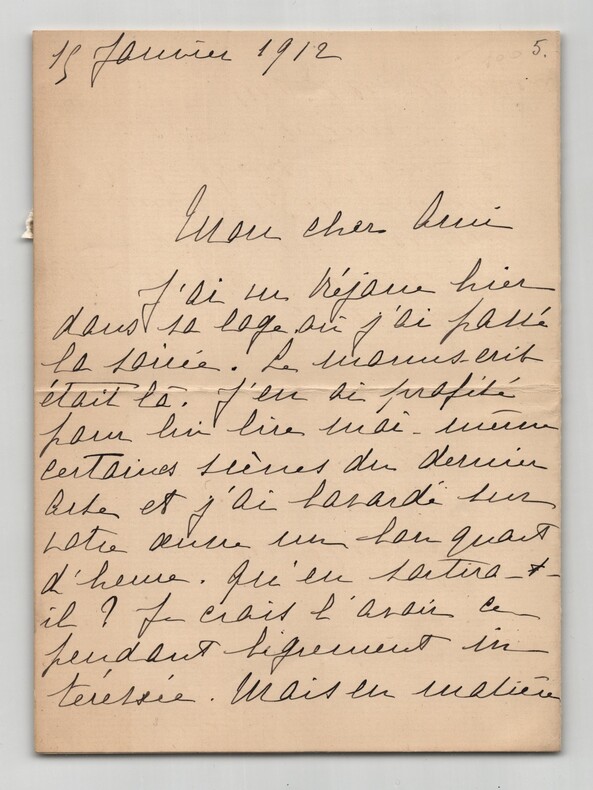 15 Janvier 1912
5.
Mon cher Ami
J'ai vu Réjane hier
dans sa loge où j'ai passé
la soirée. Le manuscrit
était là. J'en ai profité
pour lui lire moi-même
certaines scènes du dernier
acte et j'ai bavardé sur
votre œuvre un bon quart
d'heure. Qu'en sortira-t-
il ? Je crois l'avoir ce
pendant bigrement in
téressée. Mais en matière